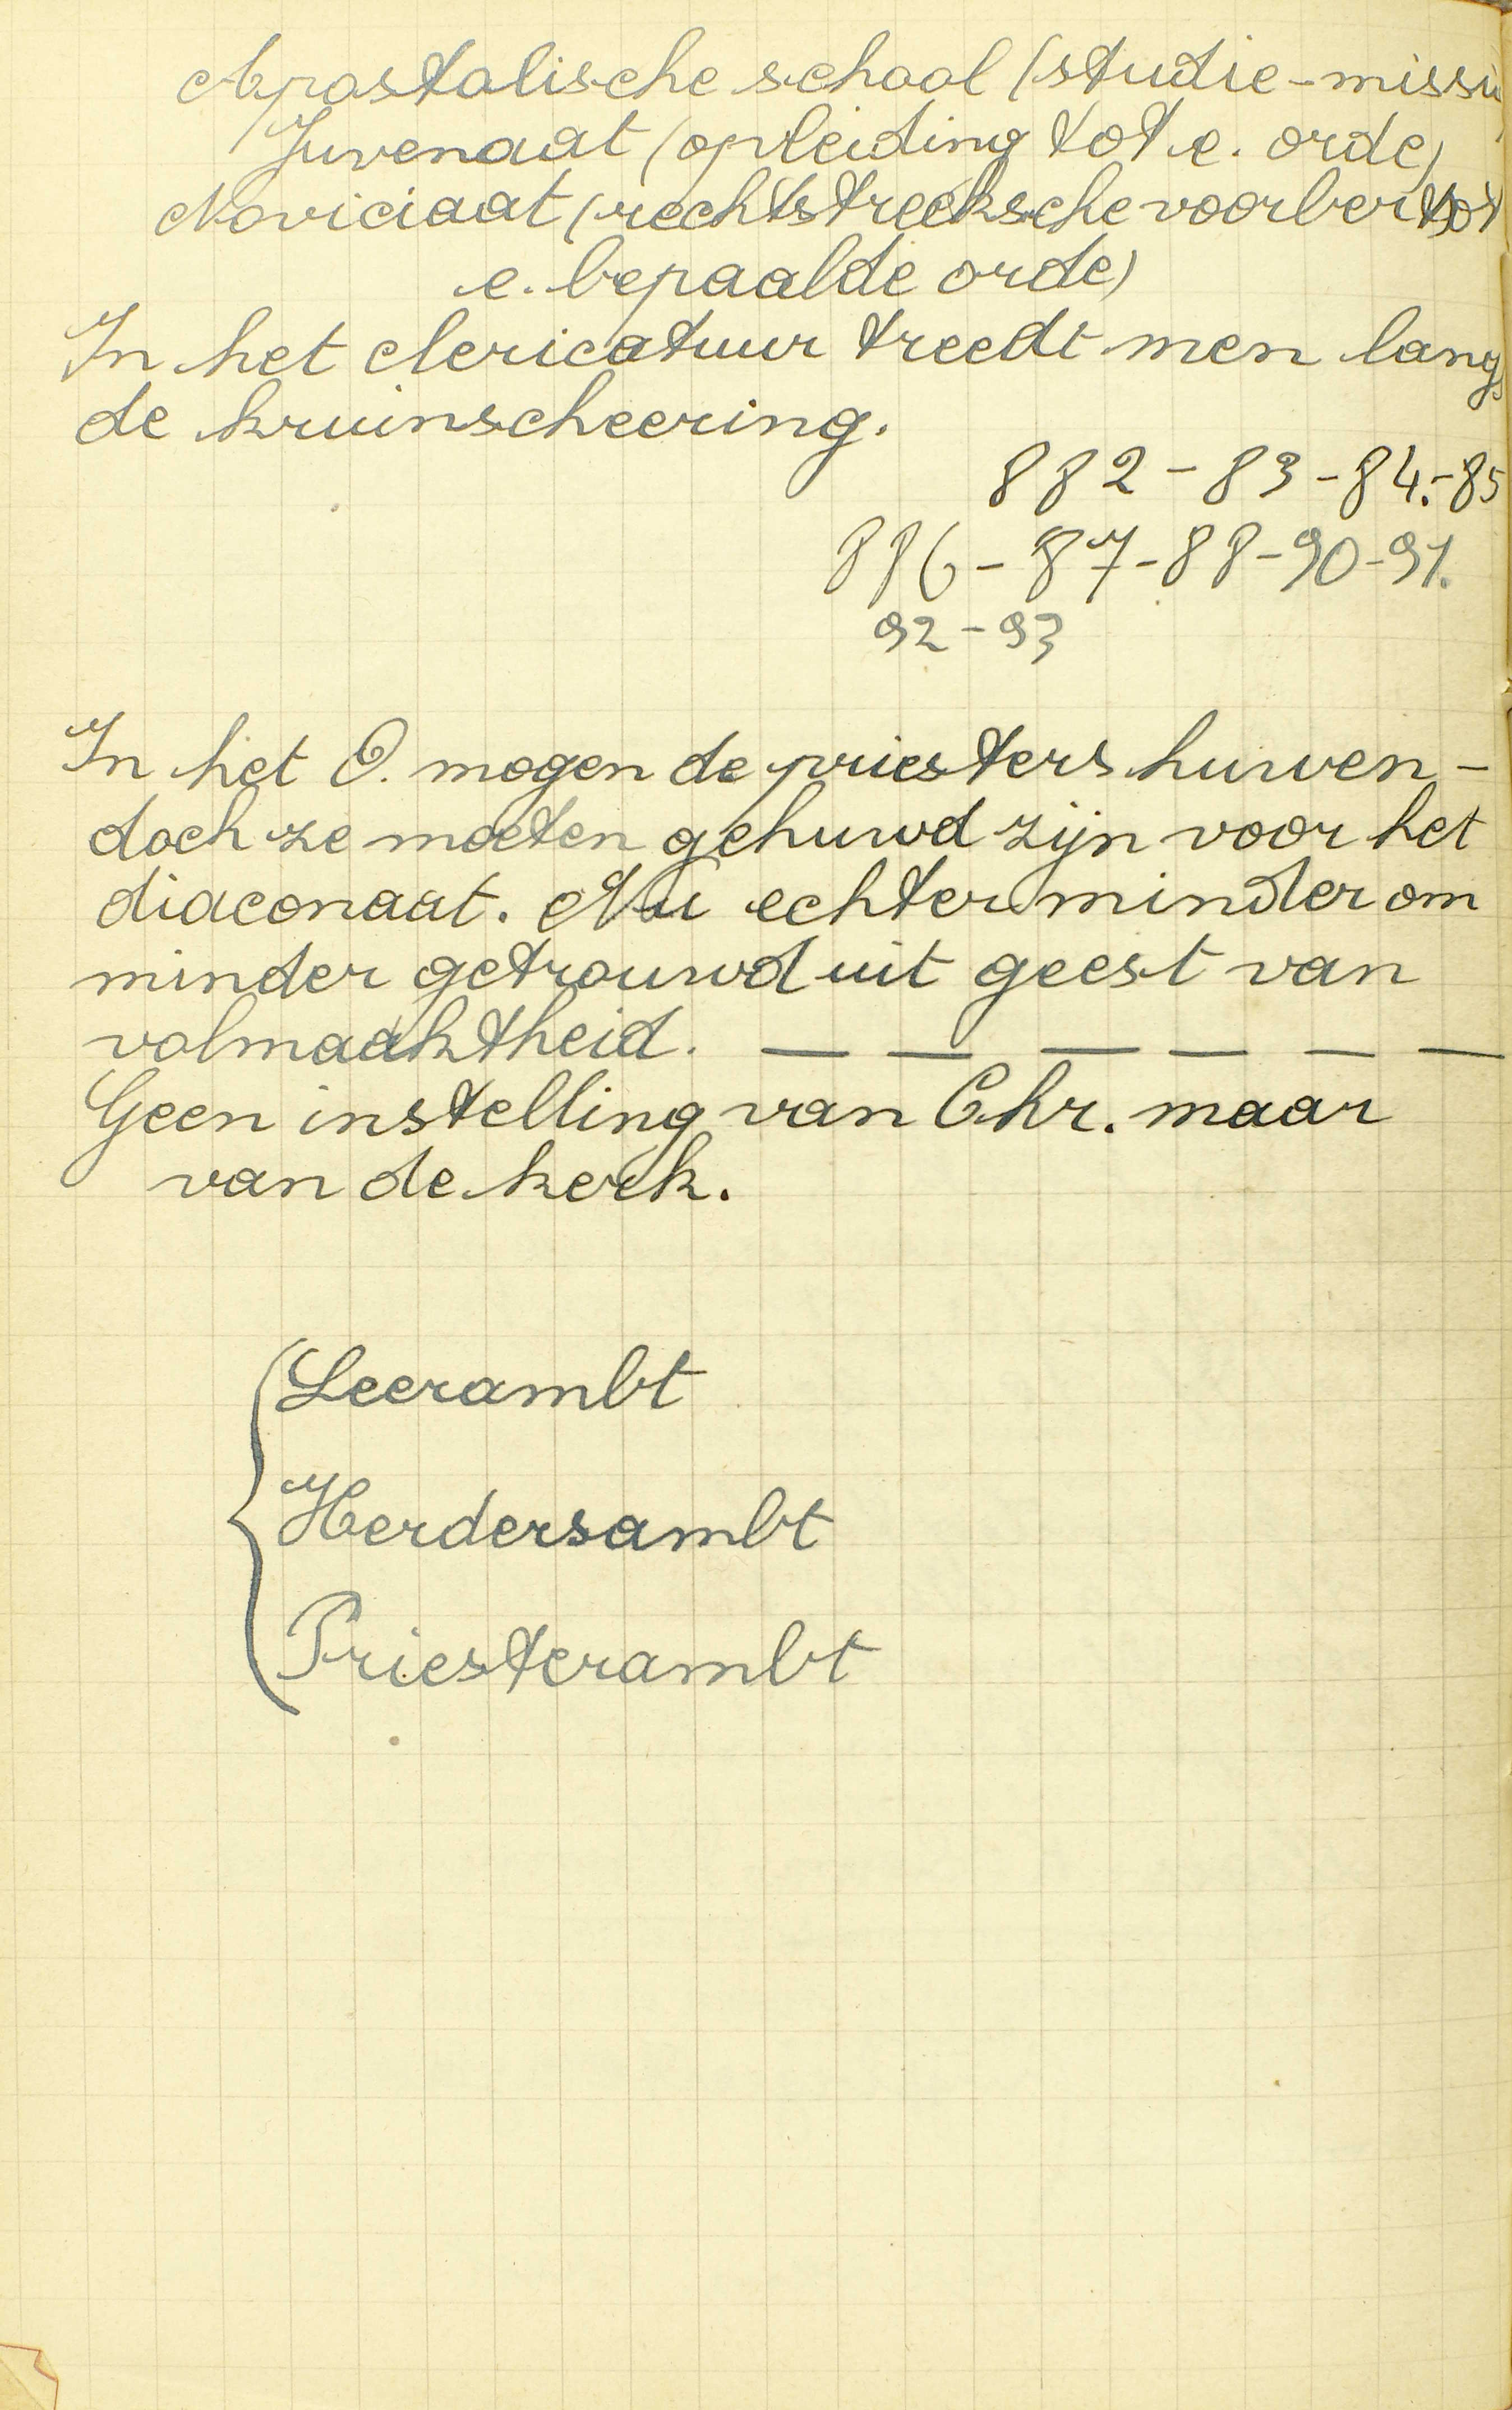 Apostolische school (studie-missi
Juvenaat (opleiding tot e. orde)
Noviciaat (rechtstreeksche voorber tot
e. bepaalde orde)
In het clericatuur treedt men langs
de kruinscheering.
882-83-84.-85
886-87-88-90-91.
92-93
In het O. mogen de priesters huwen -
doch ze moeten gehuwd zijn voor het
diaconaat. Nu echter minder om
minder getrouwd uit geest van
volmaaktheid. — — — — — —
Geen instelling van Chr. maar
van de kerk.
{ Leerambt
Herdersambt
Priesterambt